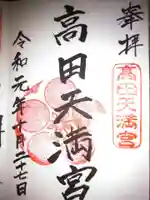 奉拝
高田天満宮
高田天満宮
令和元年十月二十七日